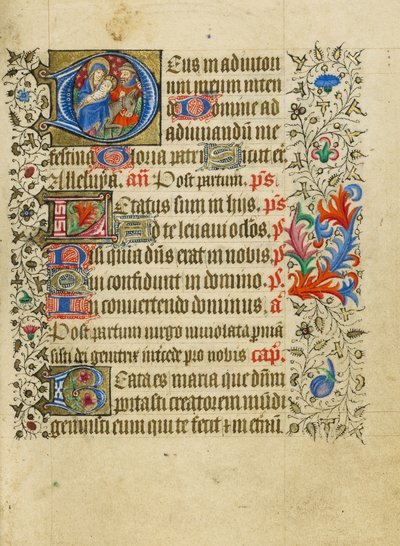 Deus in adiutori
um meum inten
de Domine ad
adiuuandum me
festina Gloria patri Sicut erat
Alleluya. añ Post partum. ps̃
Letatus sum in hiis. ps̃
Ad te leuaui oclos. ps̃
Nisi quia dñs erat in nobis. ps̃
Qui confidunt in domino. ps̃
In conuertendo dominus. a
Post partum uirgo inuiolata pmã
sisti dei genitrix intcede pro nobis cap̃.
Beata es maria que dñm
portasti creatorem mũdi
genuisti eum qui te fecit ⁊ in etnũ